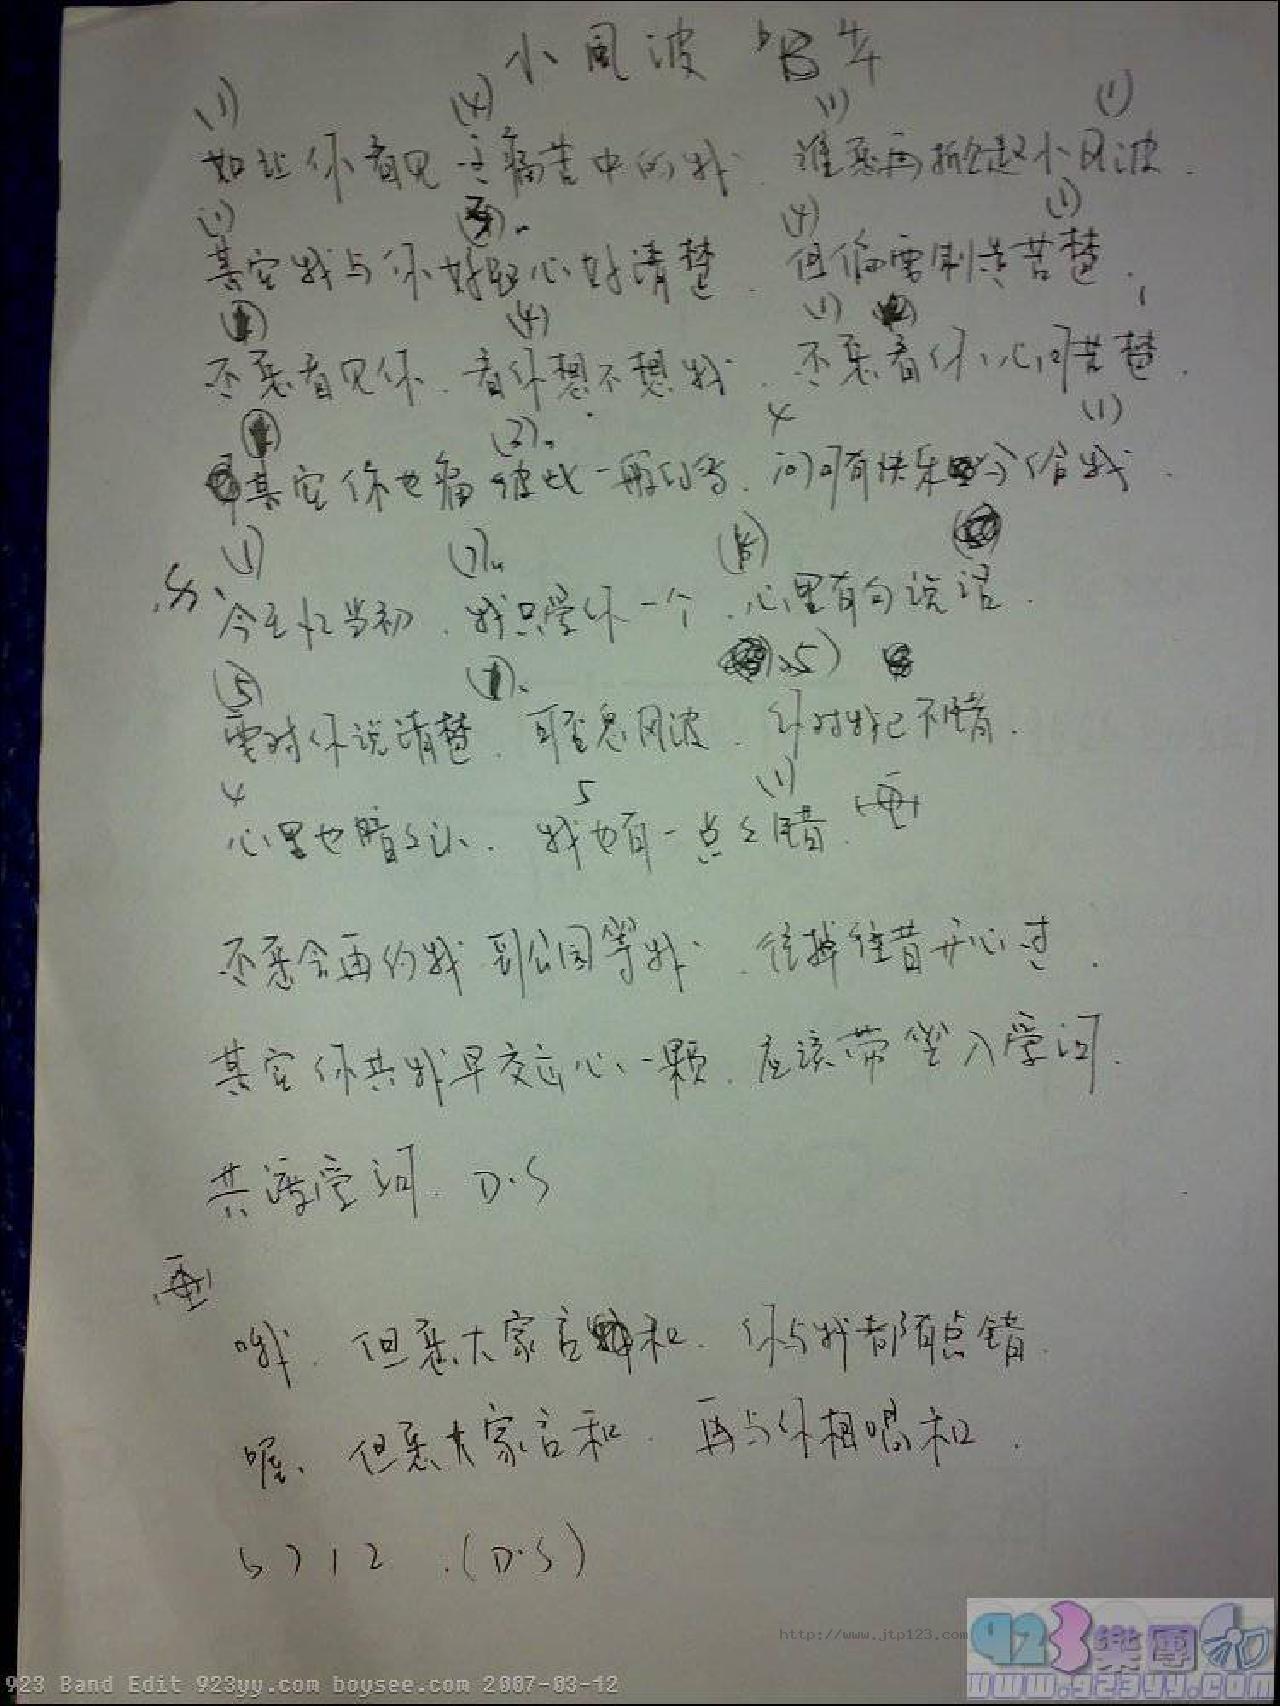 小風波 ♭B 4/4
(1) (4) (1) (1)
如让你看见 痛苦中的我 谁愿再掀起小风波.
(1) (4) (1)
其实我与你好知心好清楚 但偏要制造苦楚.
(4) (1) 1
还愿看见你 看你想不想我 还愿看你心间苦楚.
(2)m 4 (1)
其实你也痛 彼此一般的傻 问可有快乐分给我.
(1) (7)m (6)
今天忆当初 我只爱你一个 心里有句说话.
(5) 5)
要对你说清楚 可至息风波 你对我已不错.
4 5 (1)
心里也暗暗认 我也有一点点错 (再)
还愿会再约我 到公园等我 往掉往昔开心过.
其实你共我早交出心一颗 应该带坠入爱河.
共渡爱河 D.S
(再)
哦 但愿大家言和 你与我都有点错
喔 但愿大家言和 再与你相唱和.
5 7 1 2 .(D.S)
http://www.jtp123.com
923 樂團
www.923yy.com
923 Band Edit 923yy.com boysee.com 2007-03-12